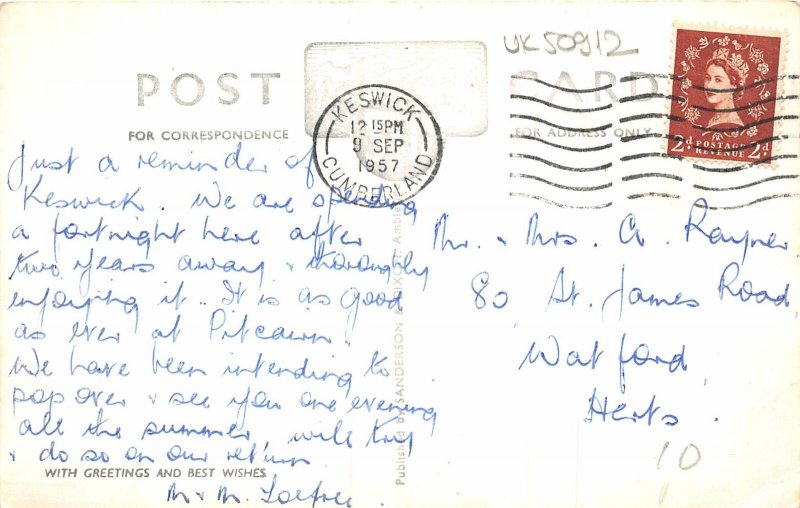 UK50912
POST CARD
FOR CORRESPONDENCE
FOR ADDRESS ONLY
KESWICK
12 15PM
9 SEP
1957
CUMBERLAND
2d POSTAGE REVENUE 2d
Just a reminder of
Keswick. We are spending
a fortnight here after
two years away & thoroughly
enjoying it. It is as good
as ever at Pitcairn.
We have been intending to
pop over & see you one evening
all the summer, will try
& do so on our return.
WITH GREETINGS AND BEST WISHES
M & M.
Published by SANDERSON & DIXON, Amble
Mr. & Mrs. A. Rayner
80 St. James Road
Watford
Herts.
10